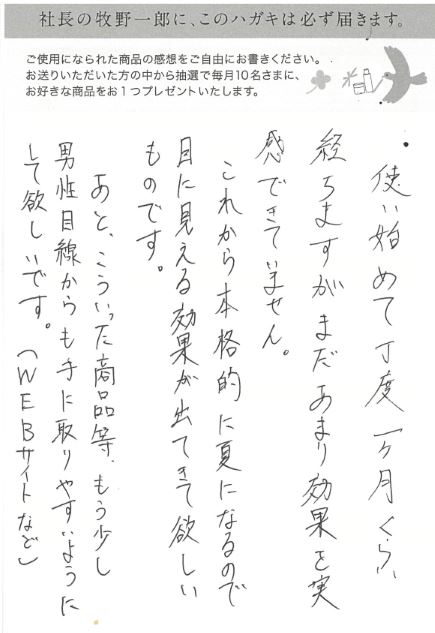 社長の牧野一郎に、このハガキは必ず届きます。
ご使用になられた商品の感想をご自由にお書きください。
お送りいただいた方の中から抽選で毎月10名さまに、
お好きな商品をお1つプレゼントいたします。
使い始めて丁度一ヶ月くらい
経ちますがまだあまり効果を実
感できていません。
これから本格的に夏になるので
目に見える効果が出てきて欲しい
ものです。
あと、こういった商品等、もう少し
男性目線からも手に取りやすいように
して欲しいです。(WEBサイトなど)